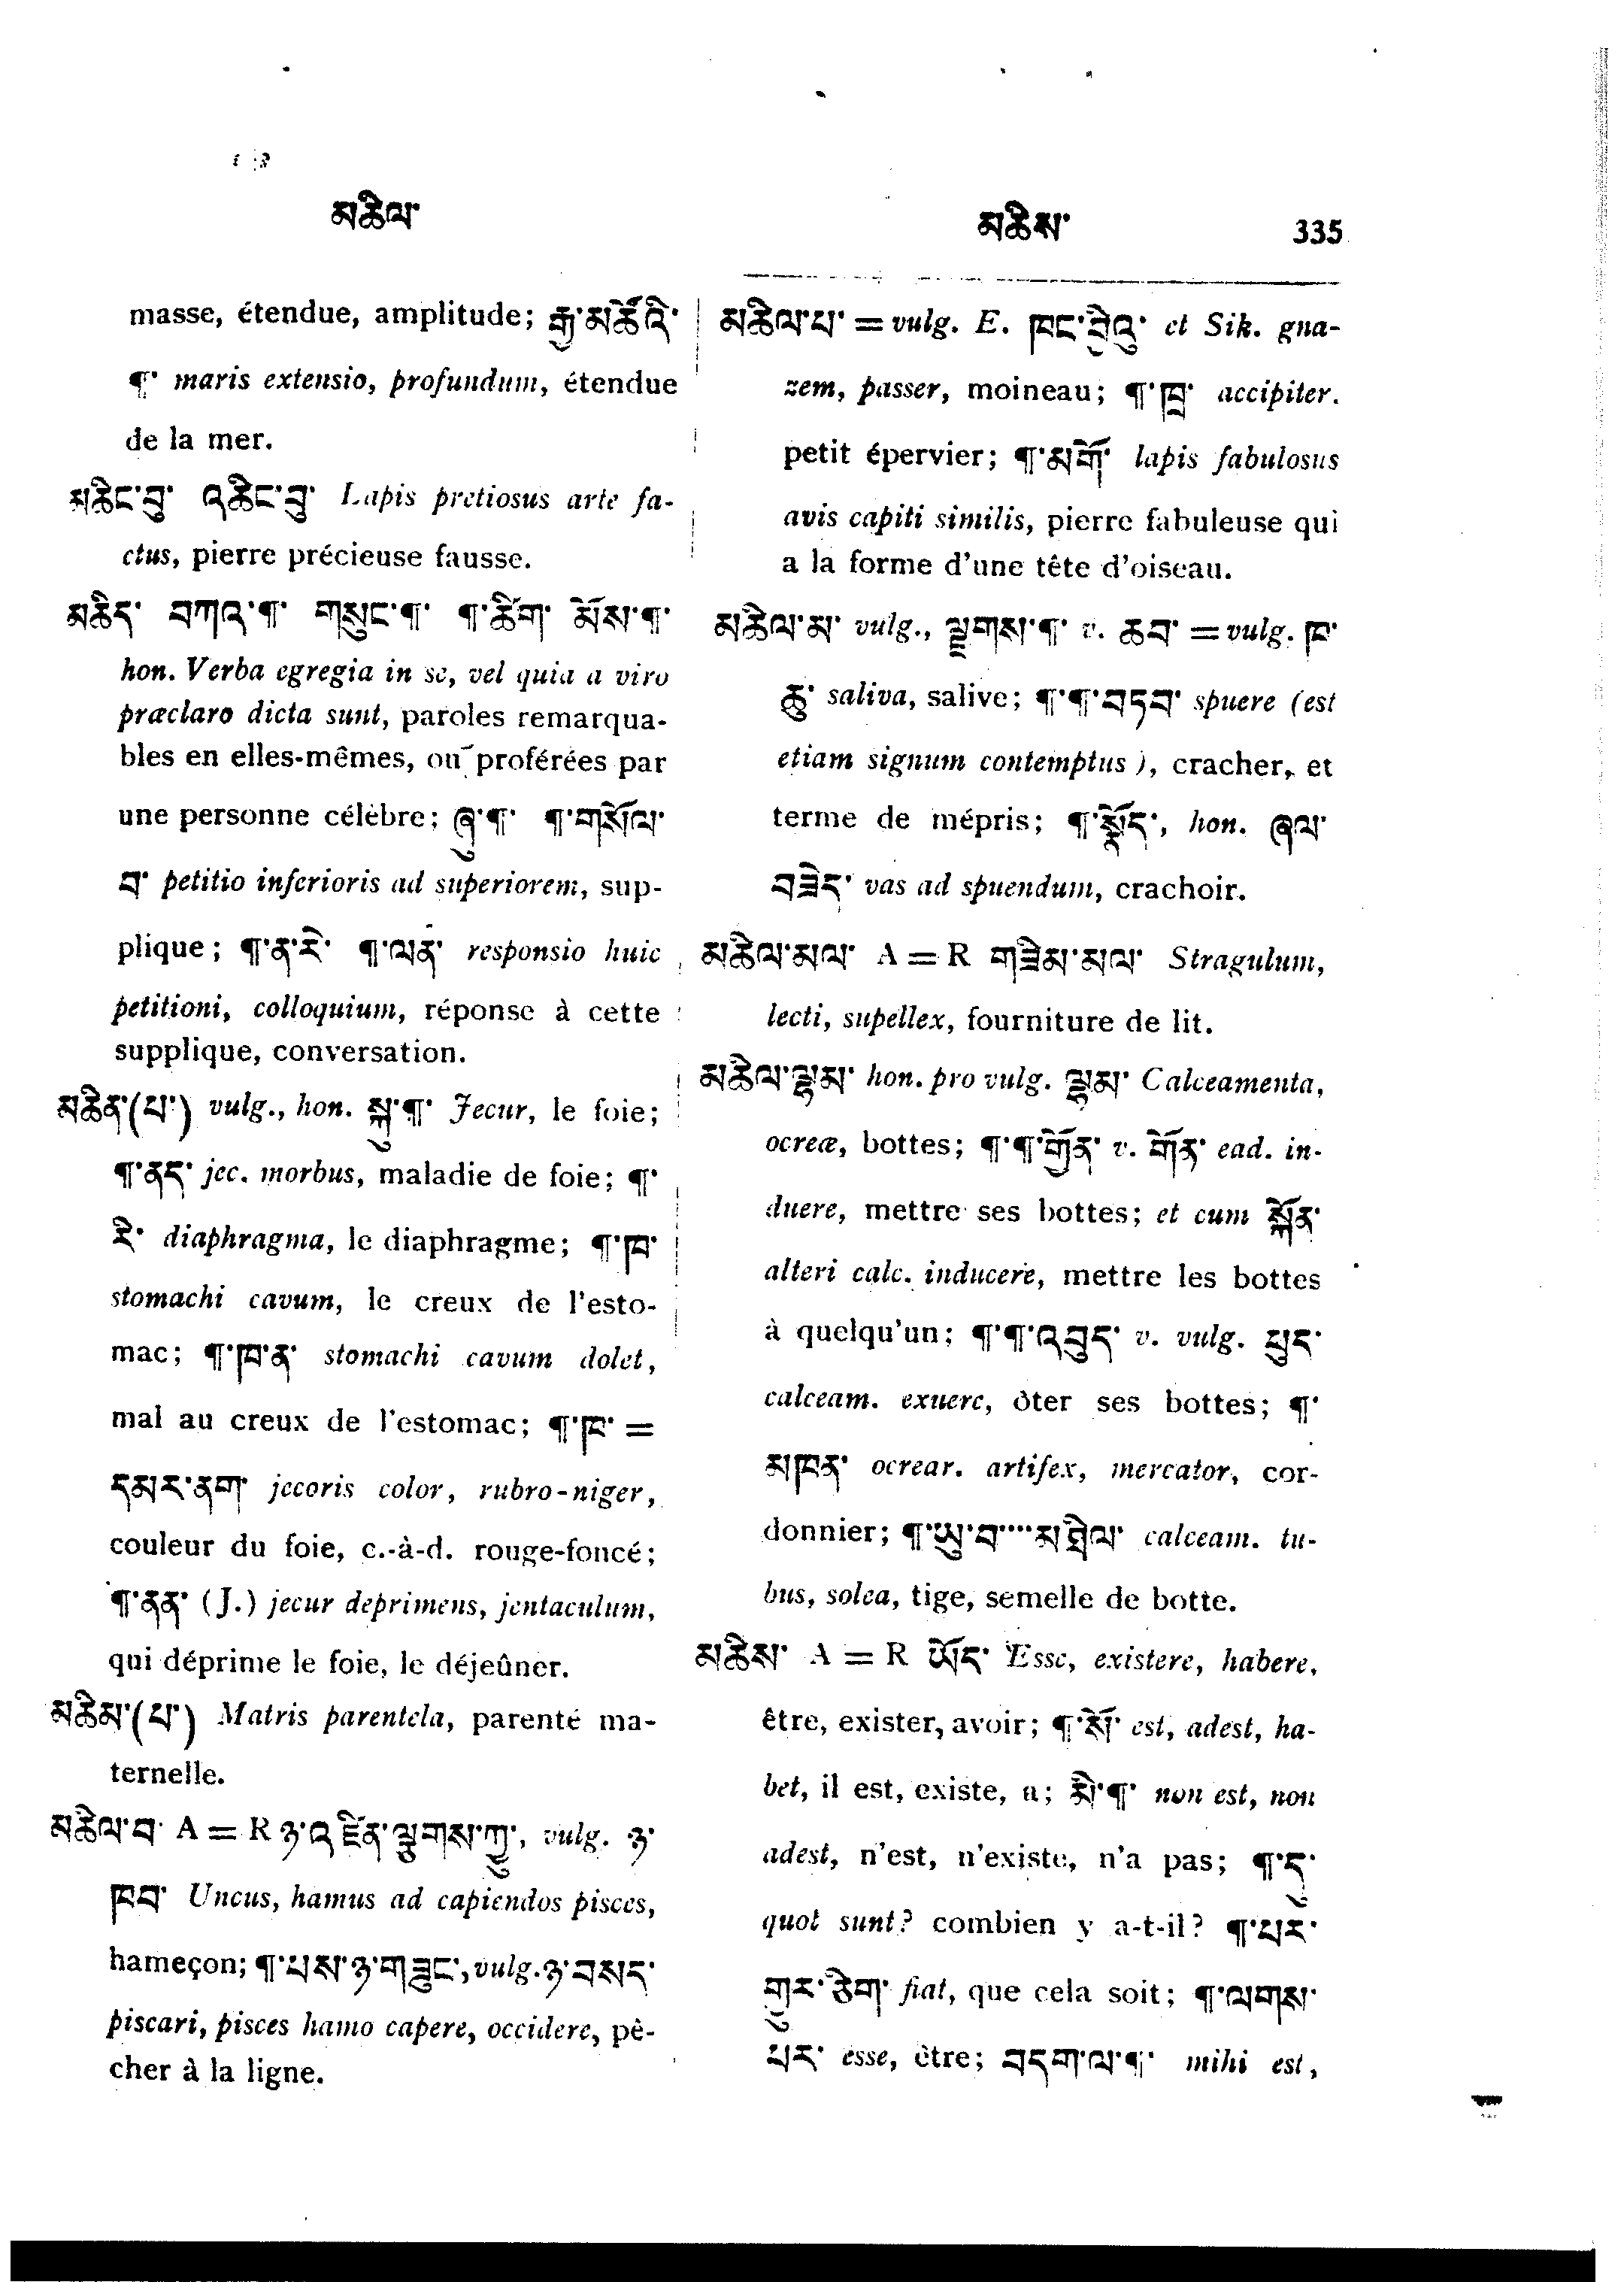 མཆིལ་
མཆིས་ 335
masse, étendue, amplitude; རྒྱ་མཚོའི་
¶་ maris extensio, profundum, étendue
de la mer.
མཆིང་བུ་ འཆིང་བུ་ Lapis pretiosus arte fa-
ctus, pierre précieuse fausse.
མཆིད་ བཀའ་¶་ གསུང་¶་ ¶་ཚིག་ མོས་¶་
hon. Verba egregia in se, vel quia a viro
præclaro dicta sunt, paroles remarqua-
bles en elles-mêmes, ou proférées par
une personne célèbre; ཞུ་¶་ ¶་གསོལ་
བ་ petitio inferioris ad superiorem, sup-
plique; ¶་ན་རེ་ ¶་ལན་ responsio huic
petitioni, colloquium, réponse à cette
supplique, conversation.
མཆིན་(པ་) vulg., hon. སྐུ་¶་ Jecur, le foie;
¶་ནད་ jec. morbus, maladie de foie; ¶་
རི་ diaphragma, le diaphragme; ¶་ཁ་
stomachi cavum, le creux de l'esto-
mac; ¶་ཁ་ན་ stomachi cavum dolet,
mal au creux de l'estomac; ¶་ཁ་ =
དམར་ནག་ jecoris color, rubro-niger,
couleur du foie, c.-à-d. rouge-foncé;
¶་ནན་ (J.) jecur deprimens, jentaculum,
qui déprime le foie, le déjeûner.
མཆིམ་(པ་) Matris parentela, parenté ma-
ternelle.
མཆིལ་བ་ A = R ཉ་འཛིན་ལྕགས་ཀྱུ་, vulg. ཉ་
ཁབ་ Uncus, hamus ad capiendos pisces,
hameçon; ¶་པས་ཉ་གཟུང་, vulg. ཉ་བསད་
piscari, pisces hamo capere, occidere, pê-
cher à la ligne.
མཆིལ་པ་ = vulg. E. ཁང་བྱིའུ་ et Sik. gna-
zem, passer, moineau; ¶་ཁྲ་ accipiter.
petit épervier; ¶་མགོ་ lapis fabulosus
avis capiti similis, pierre fabuleuse qui
a la forme d'une tête d'oiseau.
མཆིལ་མ་ vulg., ལྗགས་¶་ v. ཆབ་ = vulg. ཁ་
ཆུ་ saliva, salive; ¶་¶་བཏབ་ spuere (est
etiam signum contemptus), cracher, et
terme de mépris; ¶་སྣོད་, hon. ཞལ་
བཟེད་ vas ad spuendum, crachoir.
མཆིལ་མལ་ A = R གཟིམ་མལ་ Stragulum,
lecti, supellex, fourniture de lit.
མཆིལ་ལྷམ་ hon. pro vulg. ལྷམ་ Calceamenta,
ocreæ, bottes; ¶་¶་གྱོན་ v. གོན་ ead. in-
duere, mettre ses bottes; et cum སྐོན་
alteri calc. inducere, mettre les bottes
à quelqu'un; ¶་¶་འབུད་ v. vulg. ཕུད་
calceam. exuere, ôter ses bottes; ¶་
མཁན་ ocrear. artifex, mercator, cor-
donnier; ¶་ཡུ་བ་···མཐིལ་ calceam. tu-
bus, solea, tige, semelle de botte.
མཆིས་ A = R ཡོད་ Esse, existere, habere,
être, exister, avoir; ¶་སོ་ est, adest, ha-
bet, il est, existe, a; མི་¶་ non est, non
adest, n'est, n'existe, n'a pas; ¶་དུ་
quot sunt? combien y a-t-il? ¶་པར་
གྱུར་ཅིག་ fiat, que cela soit; ¶་ལགས་
པར་ esse, être; བདག་ལ་¶་ mihi est,